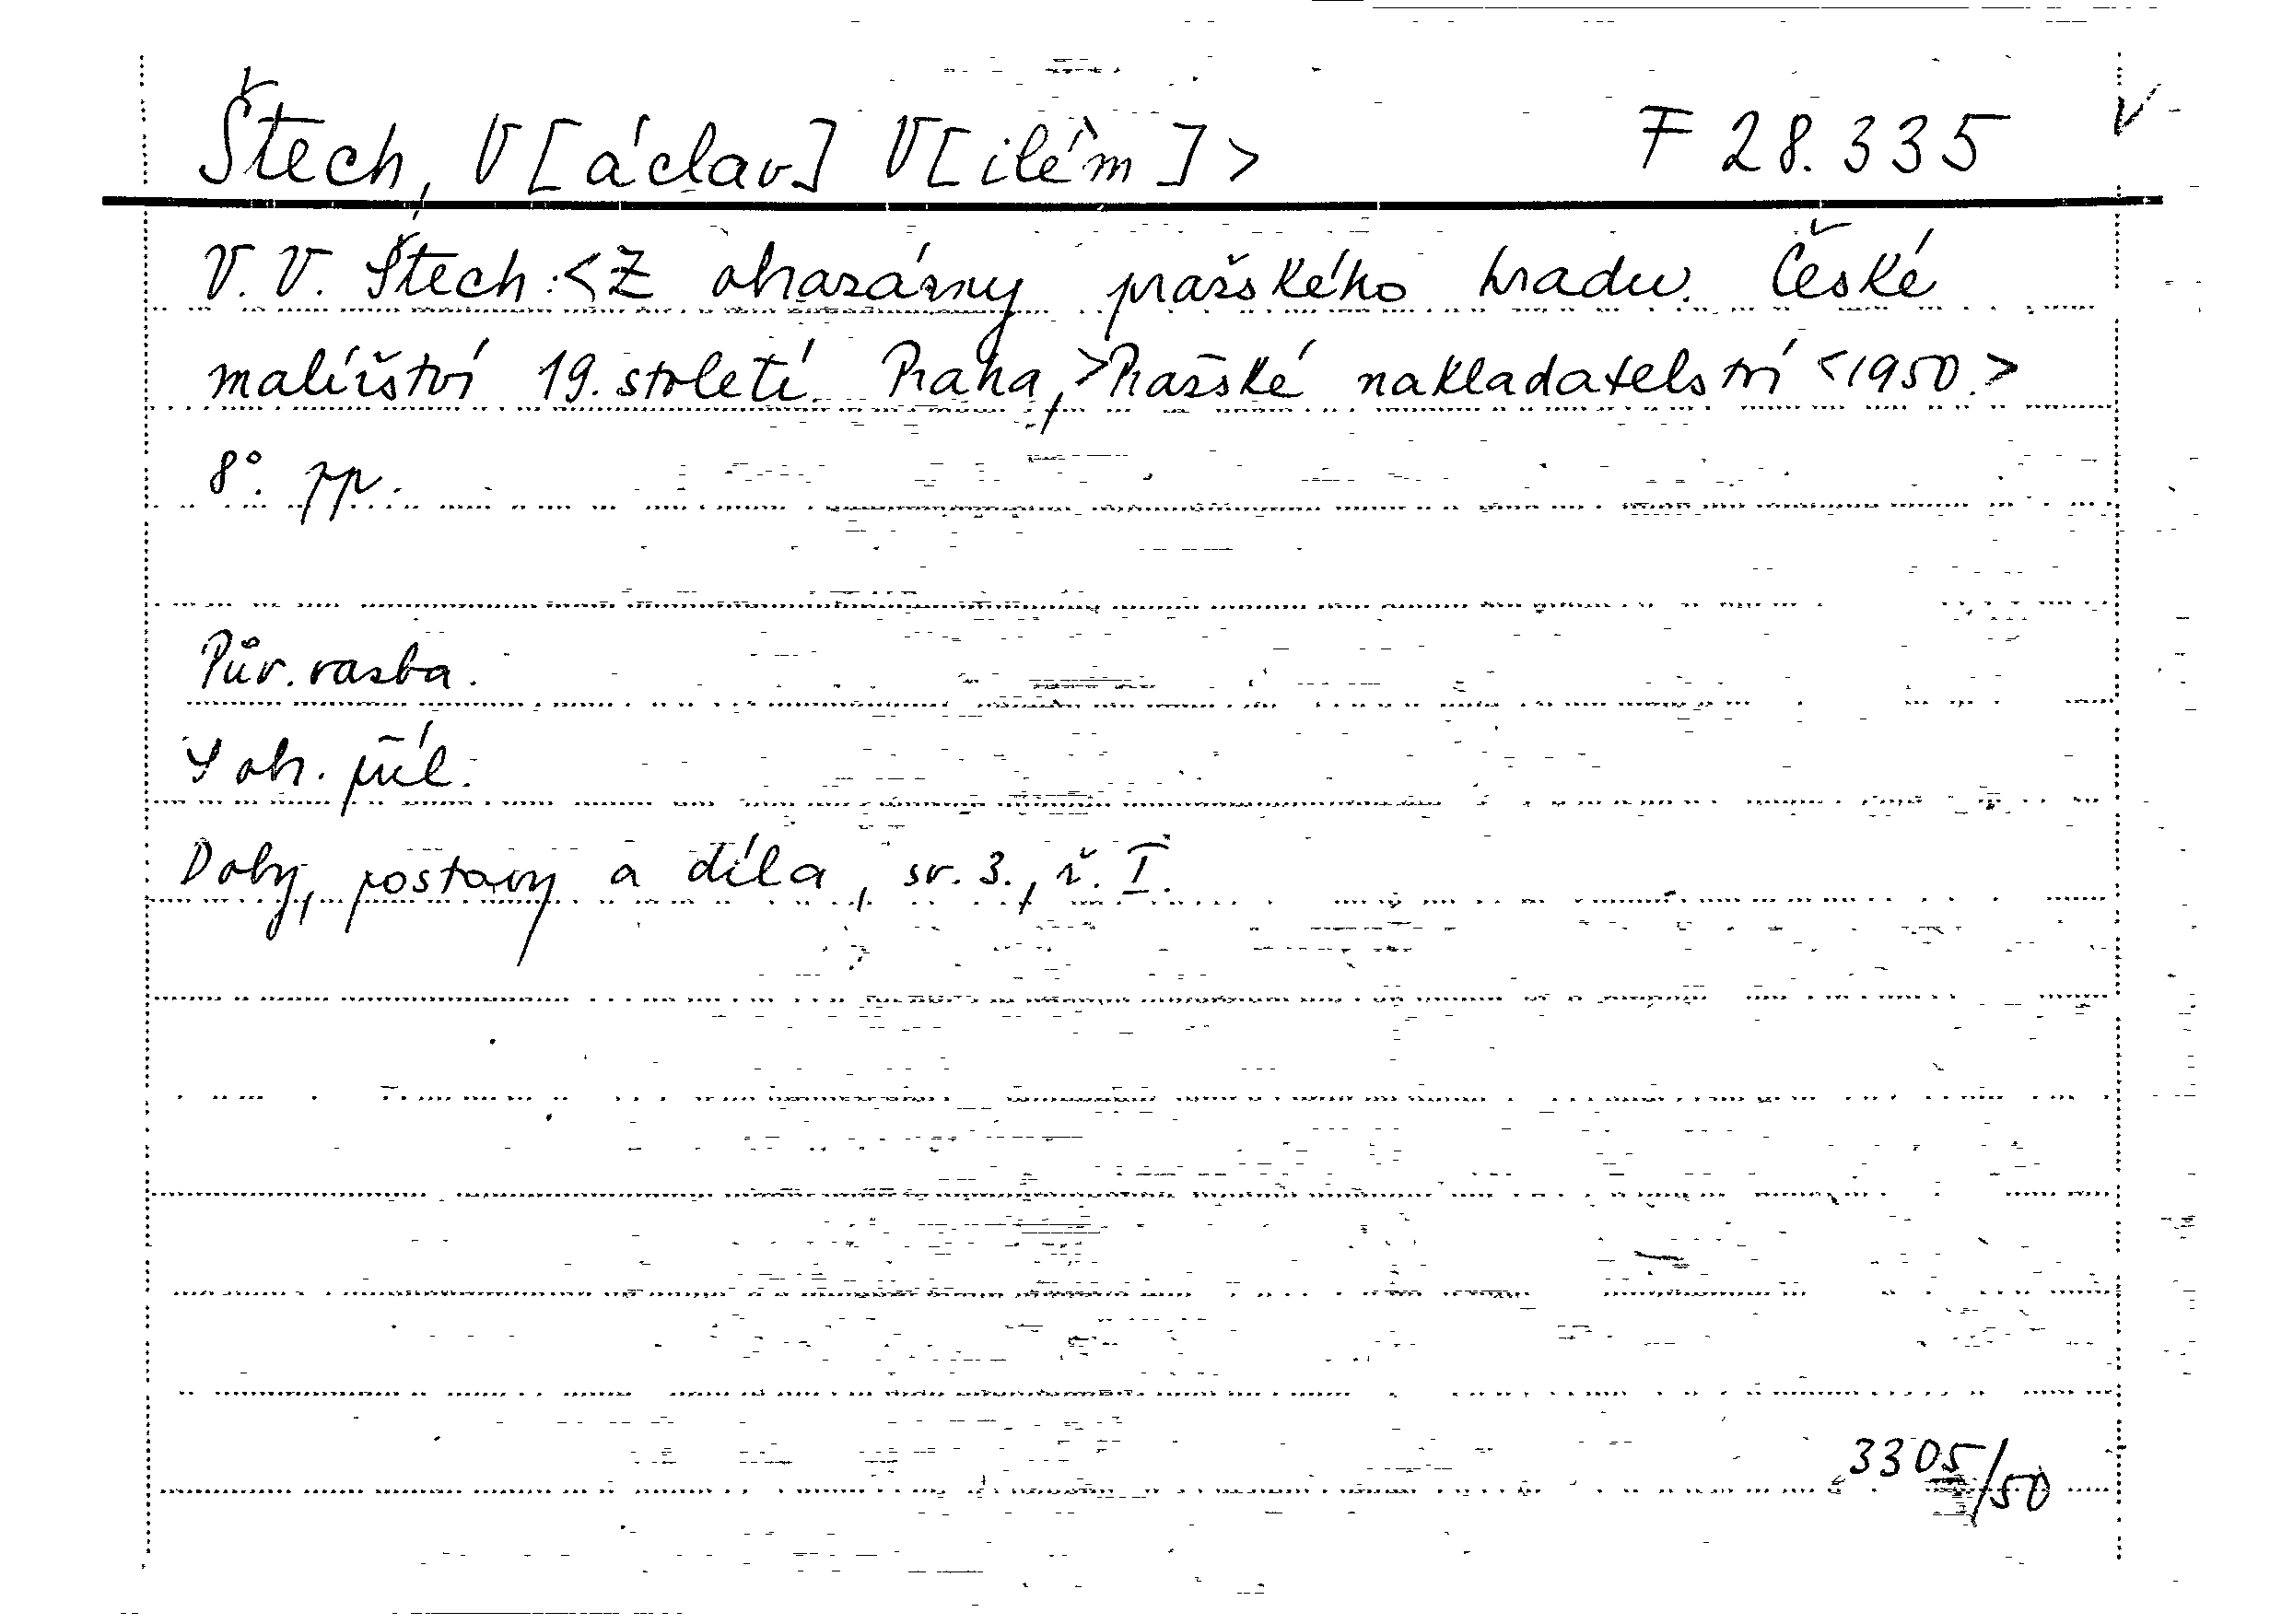 Štech, V[áclav] V[ilém]> F 28.335 V
V. V. Štech: <Z obrazárny pražského hradu. České
malířství 19. století. Praha,>Pražské nakladatelství <1950.>
8°. pp.
Pův. vazba.
S obr. příl.
Doby, postavy a díla, sv. 3., ř. I.
3305/50